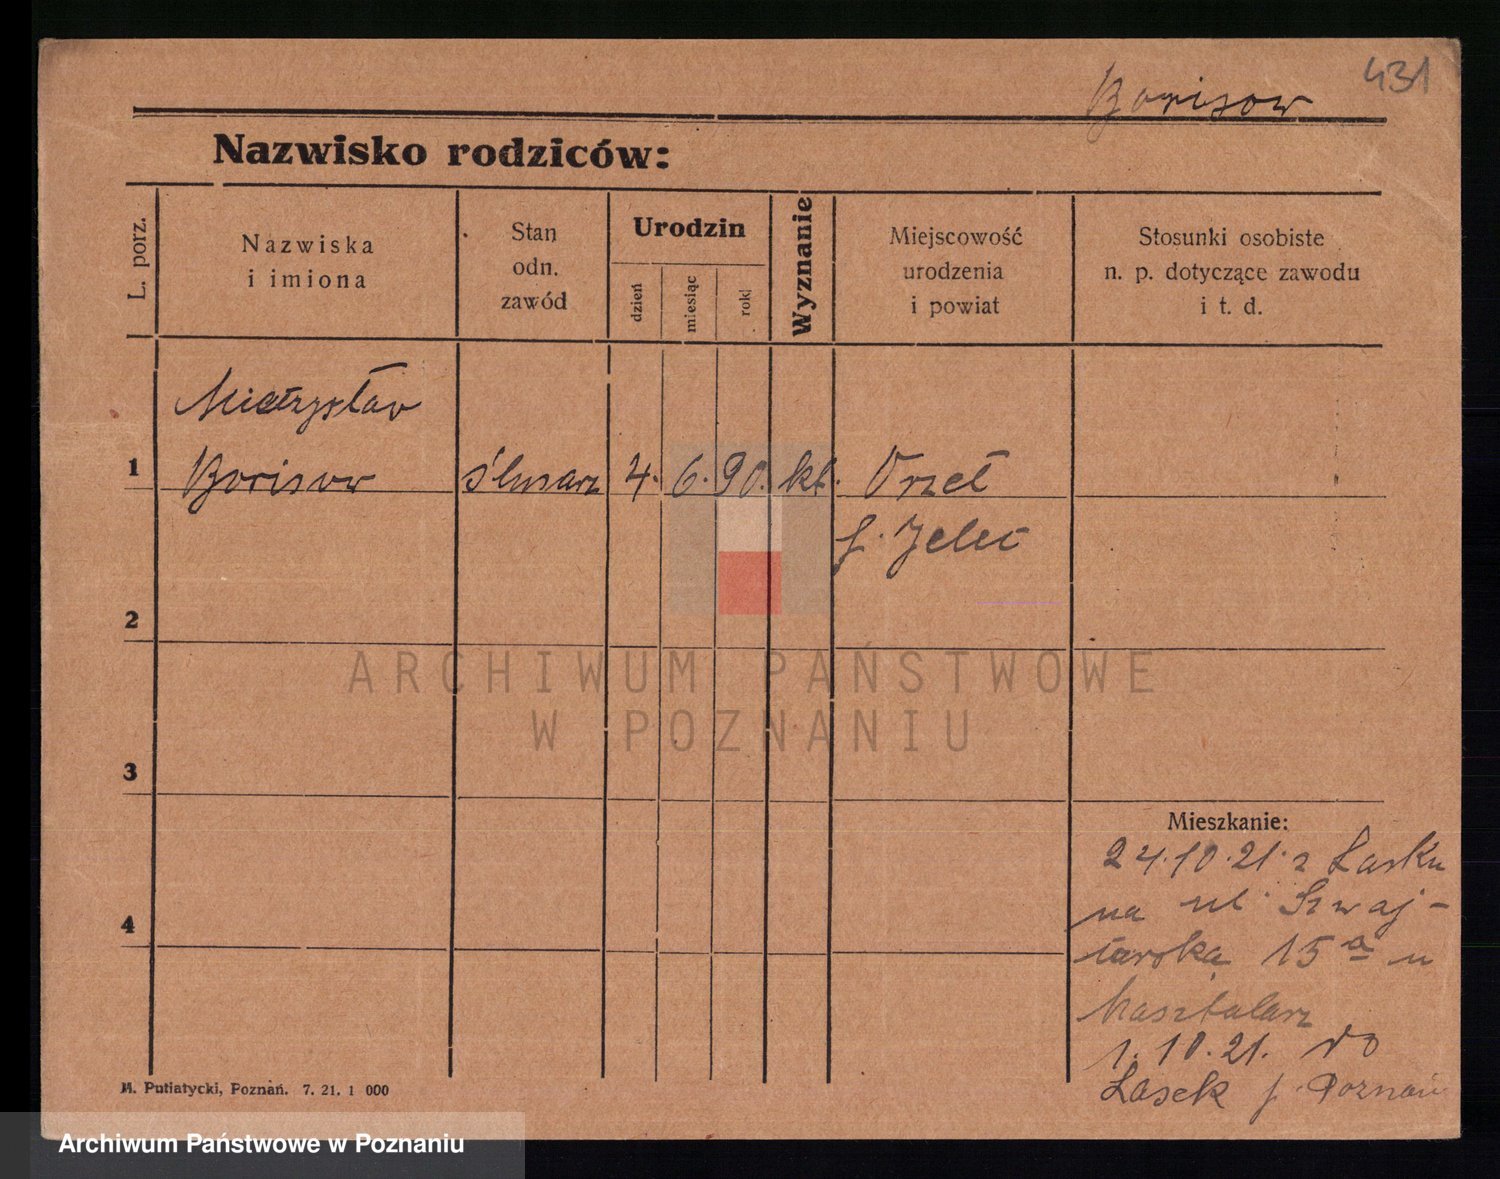 431
Borisow
Nazwisko rodziców:
L. porz.
Nazwiska
i imiona
Stan
odn.
zawód
Urodzin
dzień
miesiąc
rok
Wyznanie
Miejscowość
urodzenia
i powiat
Stosunki osobiste
n. p. dotyczące zawodu
i t. d.
Mieczysław
1 Borisow ślusarz 4. 6. 90. kt. Orzeł
Jelec
2
ARCHIWUM PAŃSTWOWE
W POZNANIU
3
Mieszkanie:
24.10.21 z Lasku
na ul Szwaj-
carską 15a u
Kasztalarz
4
1.10.21. do
Lasek p. Poznań
M. Putiatycki, Poznań. 7. 21. 1 000
Archiwum Państwowe w Poznaniu